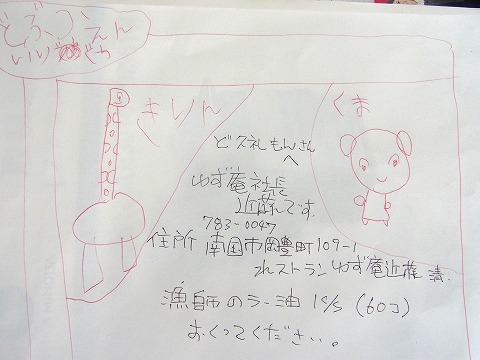 どうぶつえん
きりん
くま
ど久礼もんさんへ
ゆず庵社長
近藤です。
783-0047
住所 南国市岡豊町109-1
れストランゆず庵近藤 清.
漁師のラー油 1c/s (60コ)
おくってください。